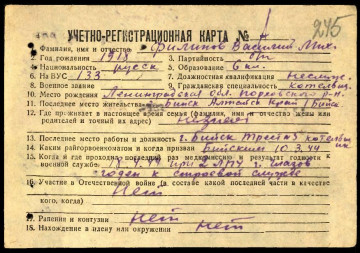 УЧЕТНО-РЕГИСТРАЦИОННАЯ КАРТА №
245
1. Фамилия, имя и отчество Филинов Василий Мих.
2. Год рождения 1918 3. Партийность б/п
4. Национальность русск 5. Образование 6 кл.
6. На ВУС 133 7. Должностная квалификация
8. Военное звание 9. Гражданская специальность котельщ.
10. Место рождения Ленинградская обл.
11. Последнее место жительства г. Бийск Алтайск край г Бийск
12. Где проживает в настоящее время семья (фамилия, имя и отчество жены или родителей и точный их адрес)
13. Последнее место работы и должность г. Бийск
14. Каким райгорвоенкоматом и когда призван Бийским 10.3.44
15. Когда и где проходил последний раз медкомиссию и результат годности к военной службе 18.4.44 при 2 ЛРУ г. Глазов
годен к строевой службе
16. Участие в Отечественной войне (в составе какой последней части и качестве кого, когда) Нет
17. Ранения и контузии нет
18. Нахождение в плену или окружении Нет